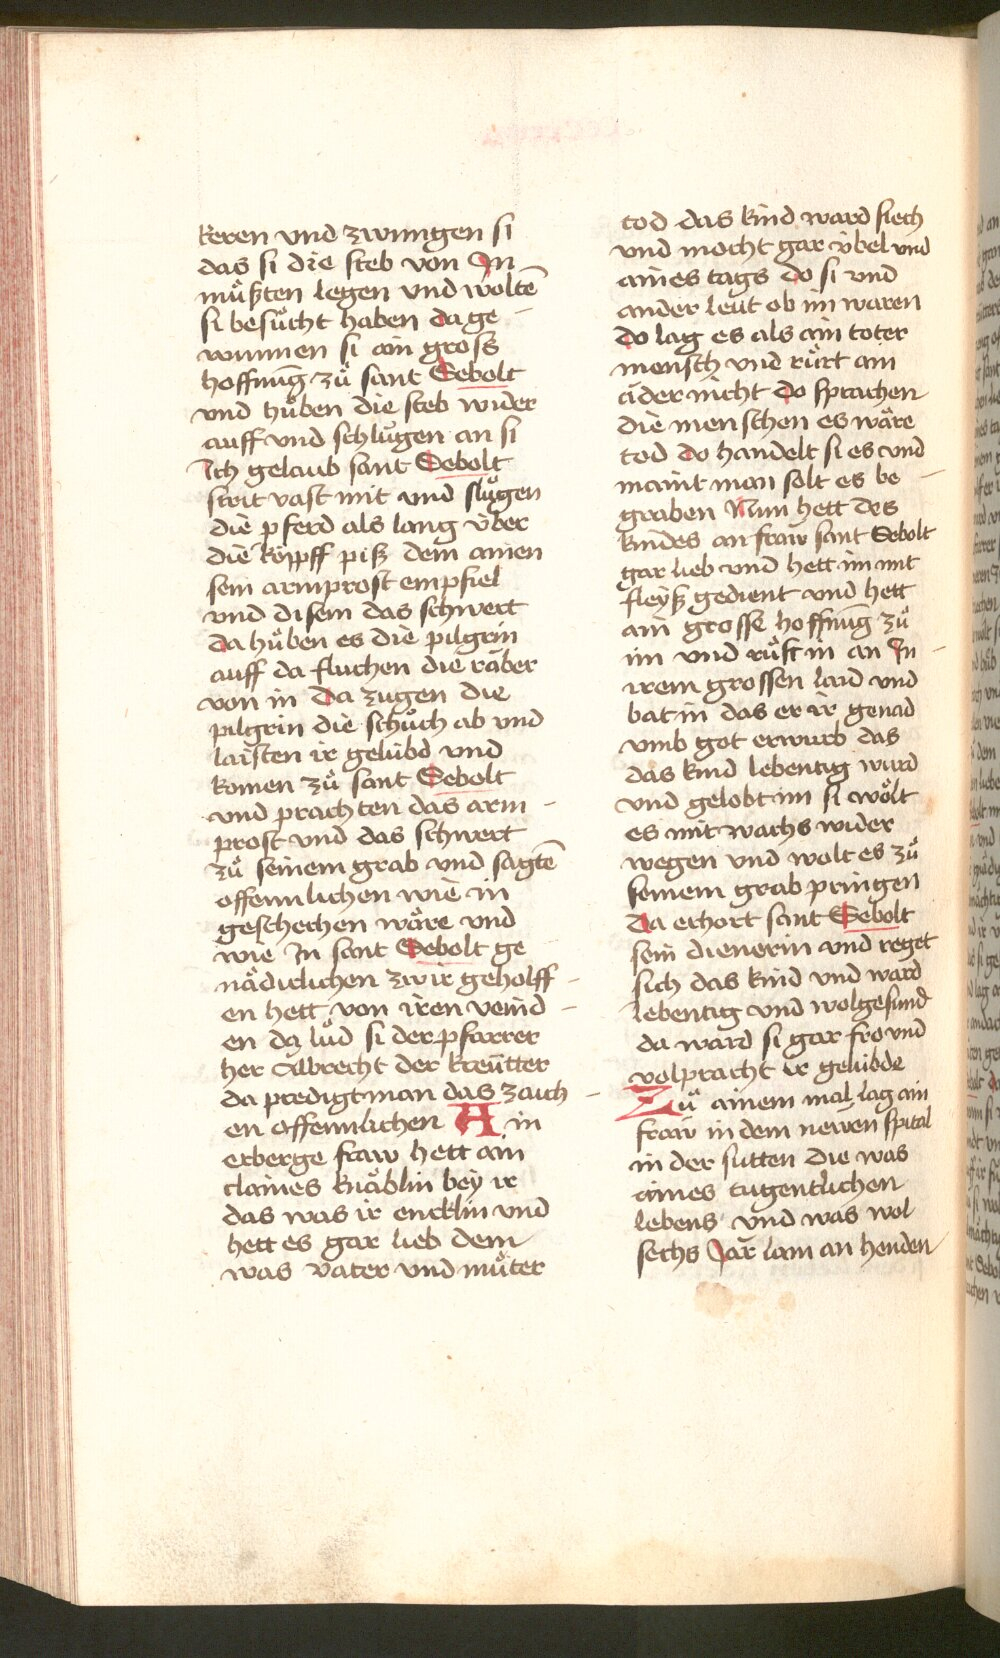 keren vnd zwungen si
das si die steb von In
muͦßten legen vnd woltē
si besuͦcht haben da ge
wunnen si ain gross
hoffnūg zuͦ sant Sebolt
vnd huͦben die steb wider
auff vnd schluͦgen an si
Ich gelaub sant Sebolt
streit vast mit vnd sluͦgen
die pferd als lang v̈ber
die koͤpff piß dem ainen
sein armprost empfiel
vnd disem das schwert
da huͦben es die pilgrin
auff da fluchen die raͤber
von in Da zugen die
pilgrin die schuͦch ab vnd
laisten ir gelübd vnd
komen zuͦ sant Sebolt
vnd prachten das arm
prost vnd das schwert
zuͦ seinem grab vnd sagtē
offennlichen wie in
geschechen waͤre vnd
wie In sant Sebolt ge
naͤdiclichen zwir geholff
en hett von iren veind
en da luͦd si der pfarrer
her Albrecht der kreütter
da predigt man das zaich
en offennlichen A in
erberge fraw hett ain
claines knaͤblin bey ir
das was ir encklin vnd
hett es gar lieb dem
was vater vnd muͦter
tod das kind ward siech
vnd mocht gar v̈bel vnd
aines tags do si vnd
ander leüt ob im waren
do lag es als ain toter
mensch vnd ruͤrt ain
ader nicht do sprachen
die menschen es waͤre
tod do handelt si es vnd
maint man solt es be
graben Nun hett des
kindes an fraw sant Sebolt
gar lieb vnd hett im mit
fleyß gedient vnd hett
ain grosse hoffnūg zuͦ
im vnd ruͦft in an In
irem grossen laid vnd
bat in das er ir genad
vmb got erwurb das
das kind lebentig wurd
vnd gelobt im si woͤlt
es mit wachs wider
wegen vnd wolt es zuͦ
seinem grab pringen
Da erhort sant Sebolt
sein dienerin vnd reget
sich das kind vnd ward
lebentig vnd wolgesund
da ward si gar fro vnd
volpracht ir gelübde
Zuͦ ainem mal lag ain
fraw in dem newen spital
in der sutten die was
aines tugentlichen
lebens vnd was wol
sechs Jar lam an henden